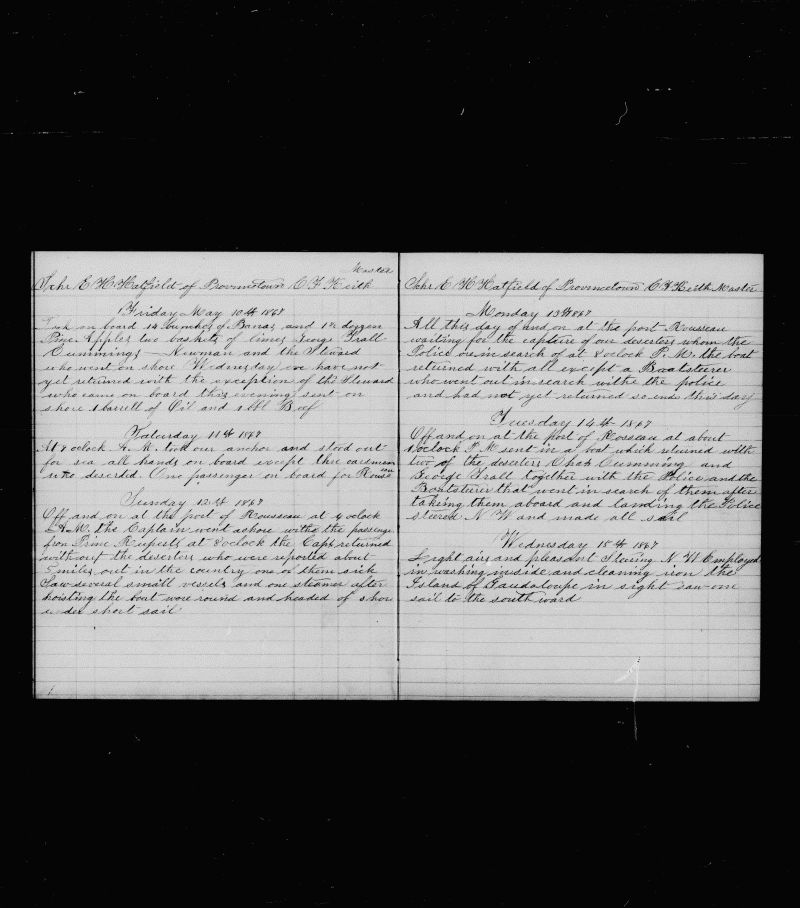 Master
Schr E H Hatfield of Provincetown C F Keith
Friday May 10th 1867
Took on board 14 bunches of Banas and 1½ dozzen
Pine Apples two baskets of limes George Trall
Cummings Newman and the Steward
who went on shore Wednesday eve have not
yet returned with the exception of the Steward
who came on board this evening sent on
shore 1 barrell of Oil and 1 bbl Beef
Saturday 11th 1867
At 7 oclock A. M. took our anchor and stood out
for sea all hands on board except three
who deserted. One passenger on board for
Sunday 12th 1867
Off and on at the port of Rousseau at 4 oclock
A. M. the Captain went ashore withe the passenge
from Prine Ruperts at 8 oclock the Capt returned
without the deserters who were reported about
5 miles out in the country one of them sick
Saw several small vessels and one steamer after
hoisting the boat wore round and headed of shore
under short sail
Schr E H Hatfield of Provincetown C F Keith Master
Monday 13th 1867
All this day of and on at the port Rousseau
waiting for the capture of our deserters whom the
Police are in search of at 8 oclock P. M. the boat
returned with all except a Boatsteirer
who went out in search withe the police
and had not yet returned so ends this day
Tuesday 14th 1867
Off and on at the port of Roseau at about
oclock P. M sent in a boat which returned with
two of the deserters Chas Cumming and
George Trall together with the Police and the
Boatsteirer that went in search of them after
taking them aboard and landing the Police
steered N W and made all sail
Wednesday 15th 1867
Light airs and pleasant Stearing N. W Employed
in washing inside and cleaning iron the
Island of Gaudaloupe in sight saw one
sail to the southward